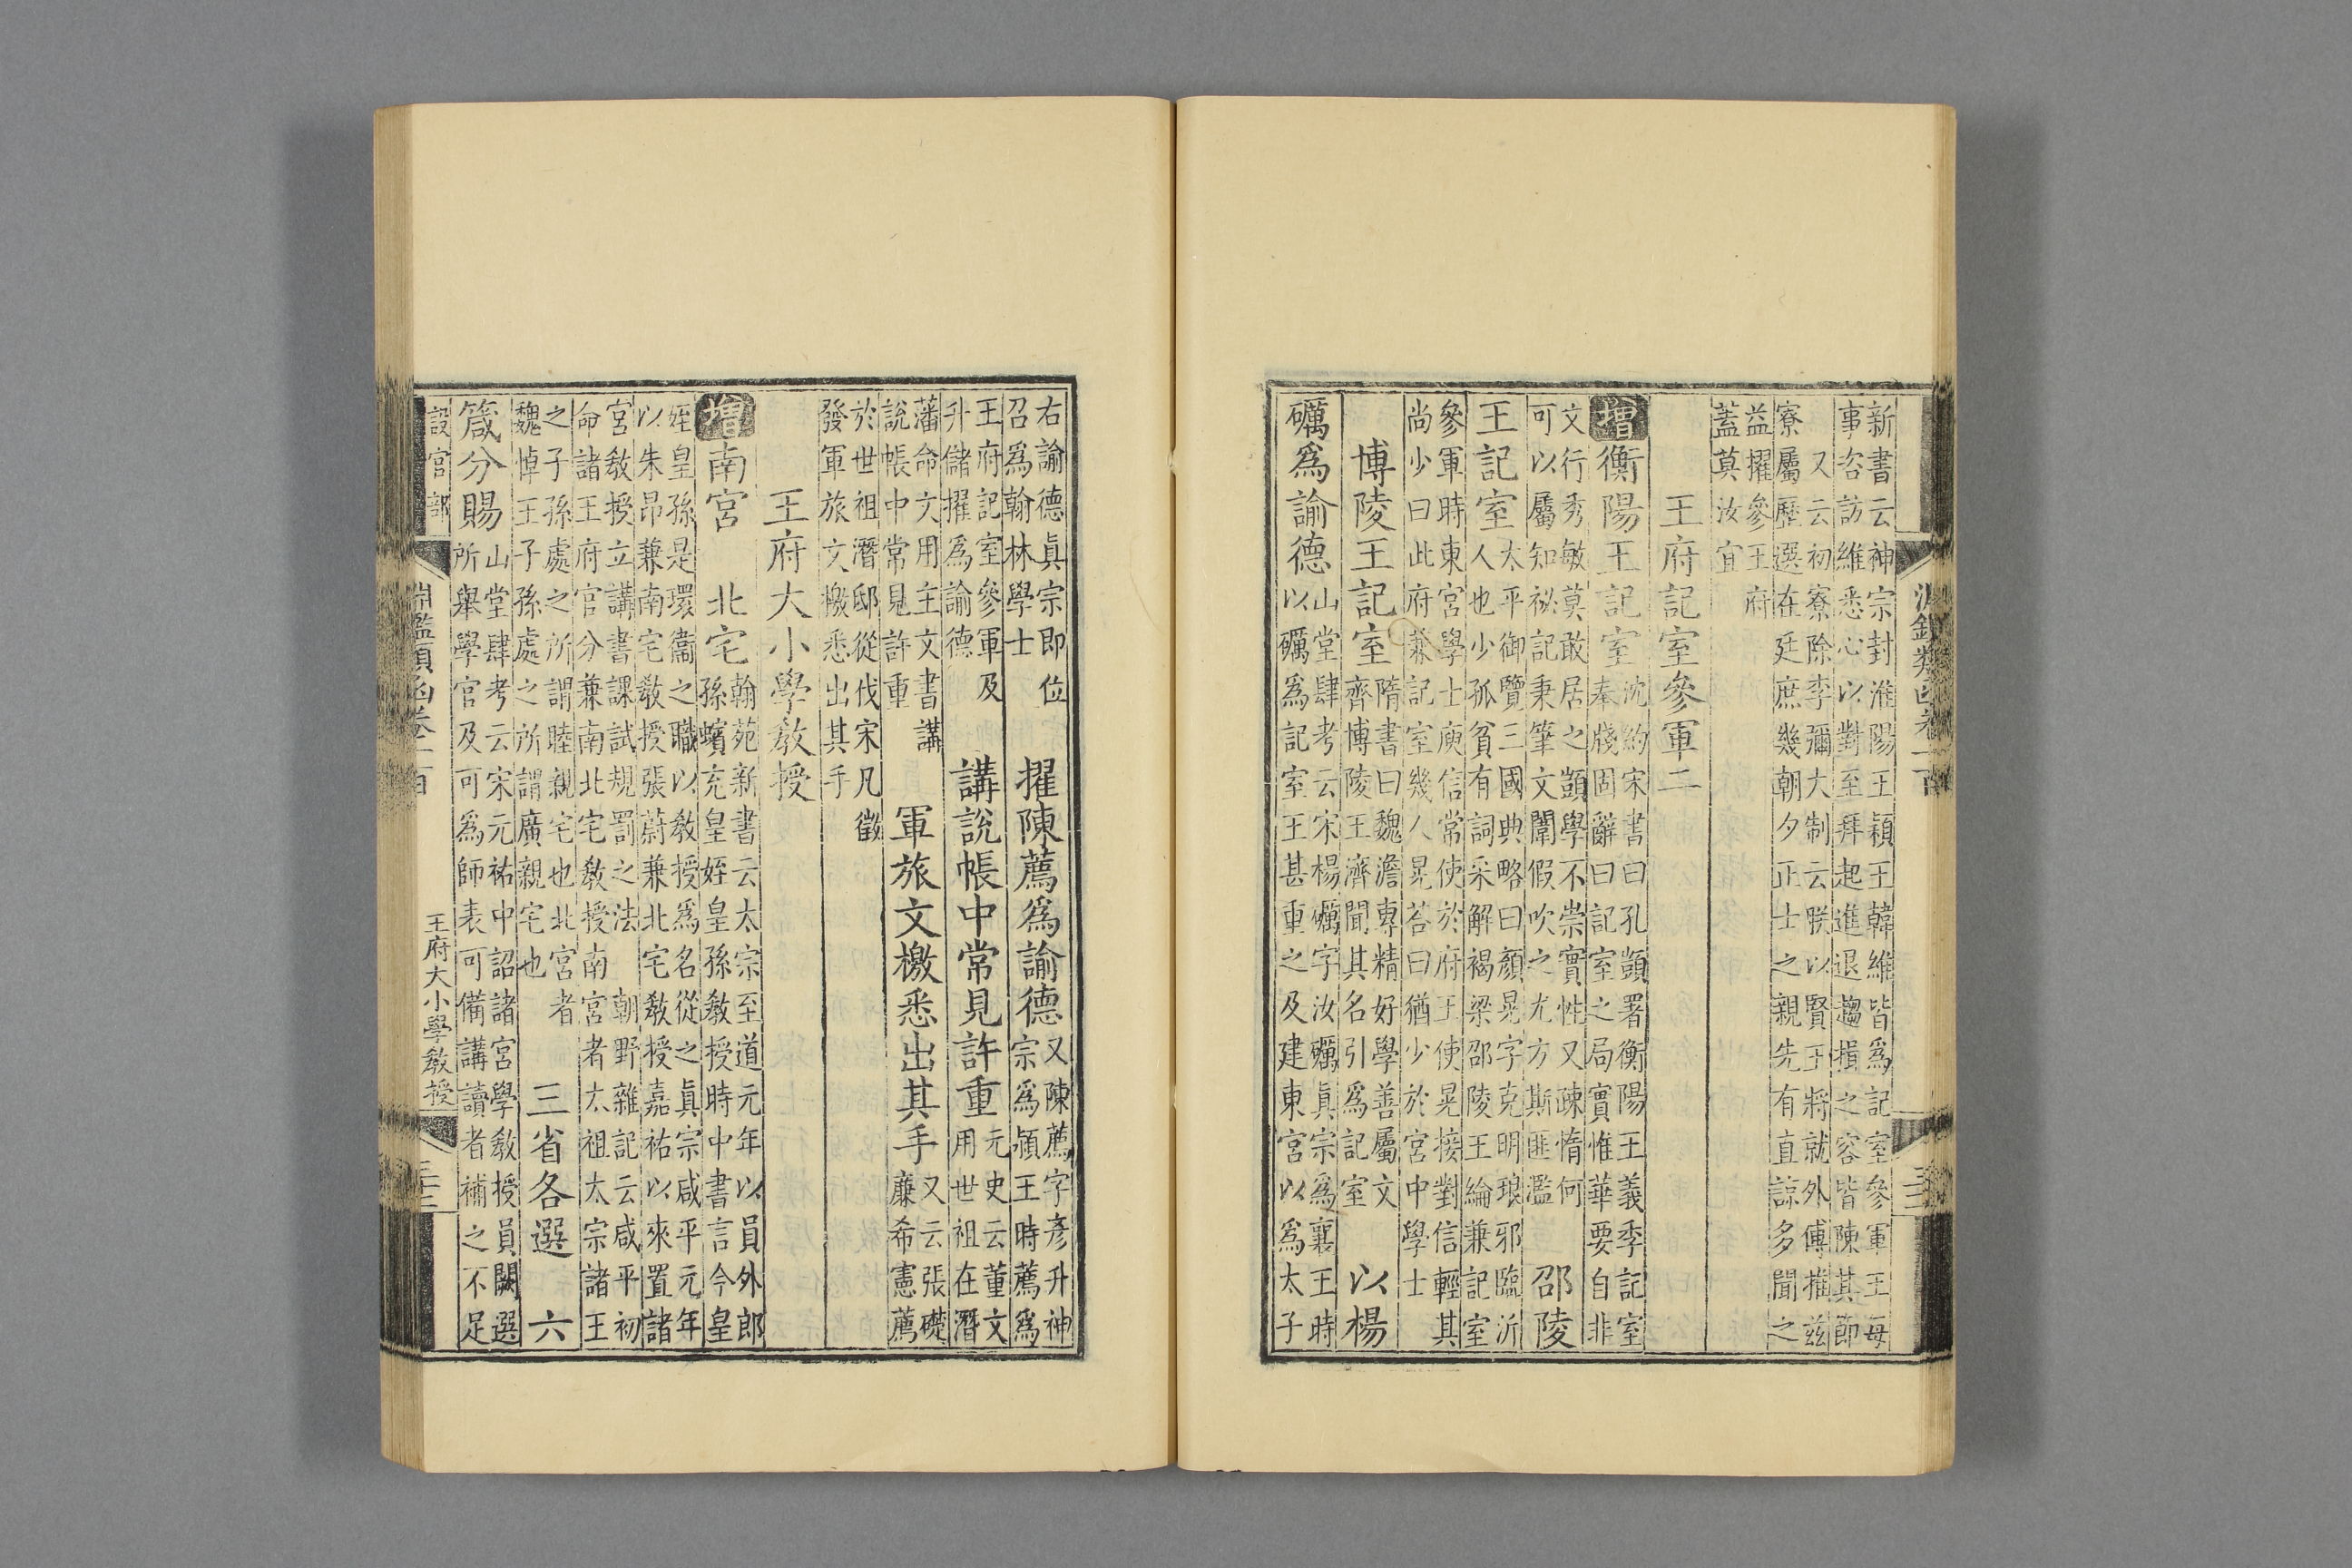 新書云神宗封淮陽王潁王韓維皆爲記室參軍王每
事咨訪維悉心以對至拜起進退趨揖之容皆陳其節
又云初寮除李彌大制云朕以賢王將就外傅推茲
寮屬歷選在廷庶幾朝夕正士之親先有直諒多聞之
益擢參王府
蓋莫汝宜
王府記室參軍二
增衡陽王記室
沈約宋書曰孔顗署衡陽王義季記室
奉牋固辭曰記室之局實惟華要自非
文行秀敏莫敢居之顗學不崇實性又疎惰何
可以屬知祕記秉筆文闈假吹之尤方斯匪濫
邵陵
王記室
太平御覽三國典略曰顏晃字克明琅邪臨沂
人也少孤貧有詞采解褐梁邵陵王綸兼記室
參軍時東宮學士庾信常使於府王使晃接對信輕其
尚少曰此府兼記室幾人晃荅曰猶少於宮中學士
博陵王記室
隋書曰魏澹專精好學善屬文
齊博陵王濟聞其名引爲記室
以楊
礪爲諭德
山堂肆考云宋楊礪字汝礪眞宗爲襄王時
以礪爲記室王甚重之及建東宮以爲太子
右諭德眞宗即位
召爲翰林學士
擢陳薦爲諭德
又陳薦字彥升神
宗爲潁王時薦爲
王府記室參軍及
升儲擢爲諭德
講說帳中常見許重
元史云董文
用世祖在潛
藩命文用主文書講
說帳中常見許重
軍旅文檄悉出其手
又云張礎
廉希憲薦
於世祖潛邸從伐宋凡徵
發軍旅文檄悉出其手
王府大小學敎授
增南宮 北宅
翰苑新書云太宗至道元年以員外郎
孫蠙充皇姪皇孫敎授時中書言今皇
姪皇孫是環衞之職以敎授爲名從之眞宗咸平元年
以朱昂兼南宅敎授張蔚兼北宅敎授嘉祐以來置諸
宮敎授立講書課試規罰之法 朝野雜記云咸平初
命諸王府官分兼南北宅敎授南宮者太祖太宗諸王
之子孫處之所謂睦親宅也北宮者
魏悼王子孫處之所謂廣親宅也
三省各選 六
箴分賜
山堂肆考云宋元祐中詔諸宮學敎授員闕選
所舉學官及可爲師表可備講讀者補之不足
設官部
淵鑑類函卷一百
王府大小學敎授